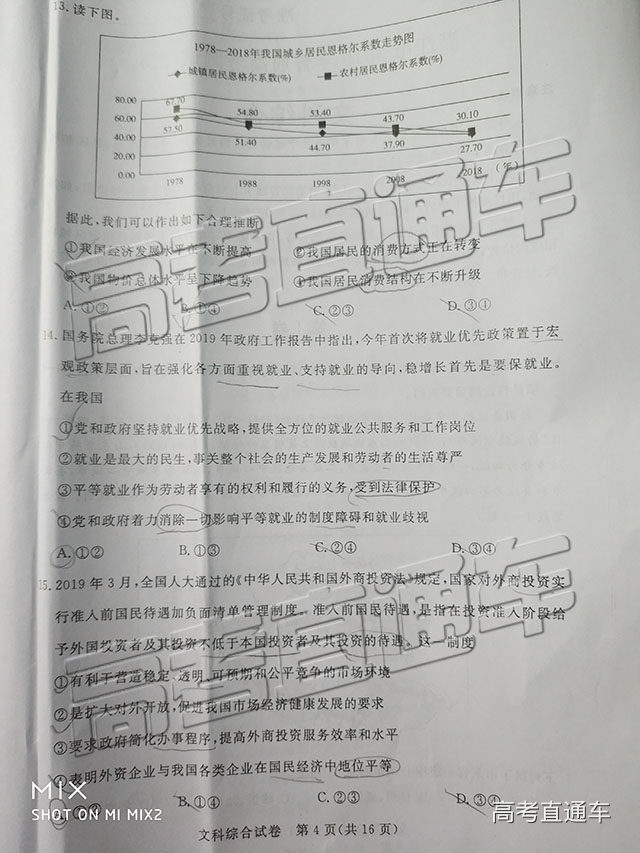 13. 读下图。
1978—2018年我国城乡居民恩格尔系数走势图
城镇居民恩格尔系数(%) 农村居民恩格尔系数(%)
80.00
60.00
40.00
20.00
0.00
67.70 54.80 53.40 43.70 30.10
57.50 51.40 44.70 37.90 27.70
1978 1988 1998 2008 2018 (年)
据此,我们可以作出如下合理推断
①我国经济发展水平在不断提高 ②我国居民的消费方式正在转变
③我国物价总体水平呈下降趋势 ④我国居民消费结构在不断升级
A.①② B.①④ C.②③ D.③④
14. 国务院总理李克强在 2019 年政府工作报告中指出,今年首次将就业优先政策置于宏
观政策层面,旨在强化各方面重视就业、支持就业的导向,稳增长首先是要保就业。
在我国
①党和政府坚持就业优先战略,提供全方位的就业公共服务和工作岗位
②就业是最大的民生,事关整个社会的生产发展和劳动者的生活尊严
③平等就业作为劳动者享有的权利和履行的义务,受到法律保护
④党和政府着力消除一切影响平等就业的制度障碍和就业歧视
A.①② B.①③ C.②④ D.③④
15. 2019 年 3 月,全国人大通过的《中华人民共和国外商投资法》规定,国家对外商投资实
行准入前国民待遇加负面清单管理制度。准入前国民待遇,是指在投资准入阶段给
予外国投资者及其投资不低于本国投资者及其投资的待遇。这一制度
①有利于营造稳定、透明、可预期和公平竞争的市场环境
②是扩大对外开放,促进我国市场经济健康发展的要求
③要求政府简化办事程序,提高外商投资服务效率和水平
④表明外资企业与我国各类企业在国民经济中地位平等
①② B.①④ C.②③ D.③④
文科综合试卷 第 4 页(共 16 页)
高考直通车
高考直通车
高考直通车
MIX
SHOT ON MI MIX2